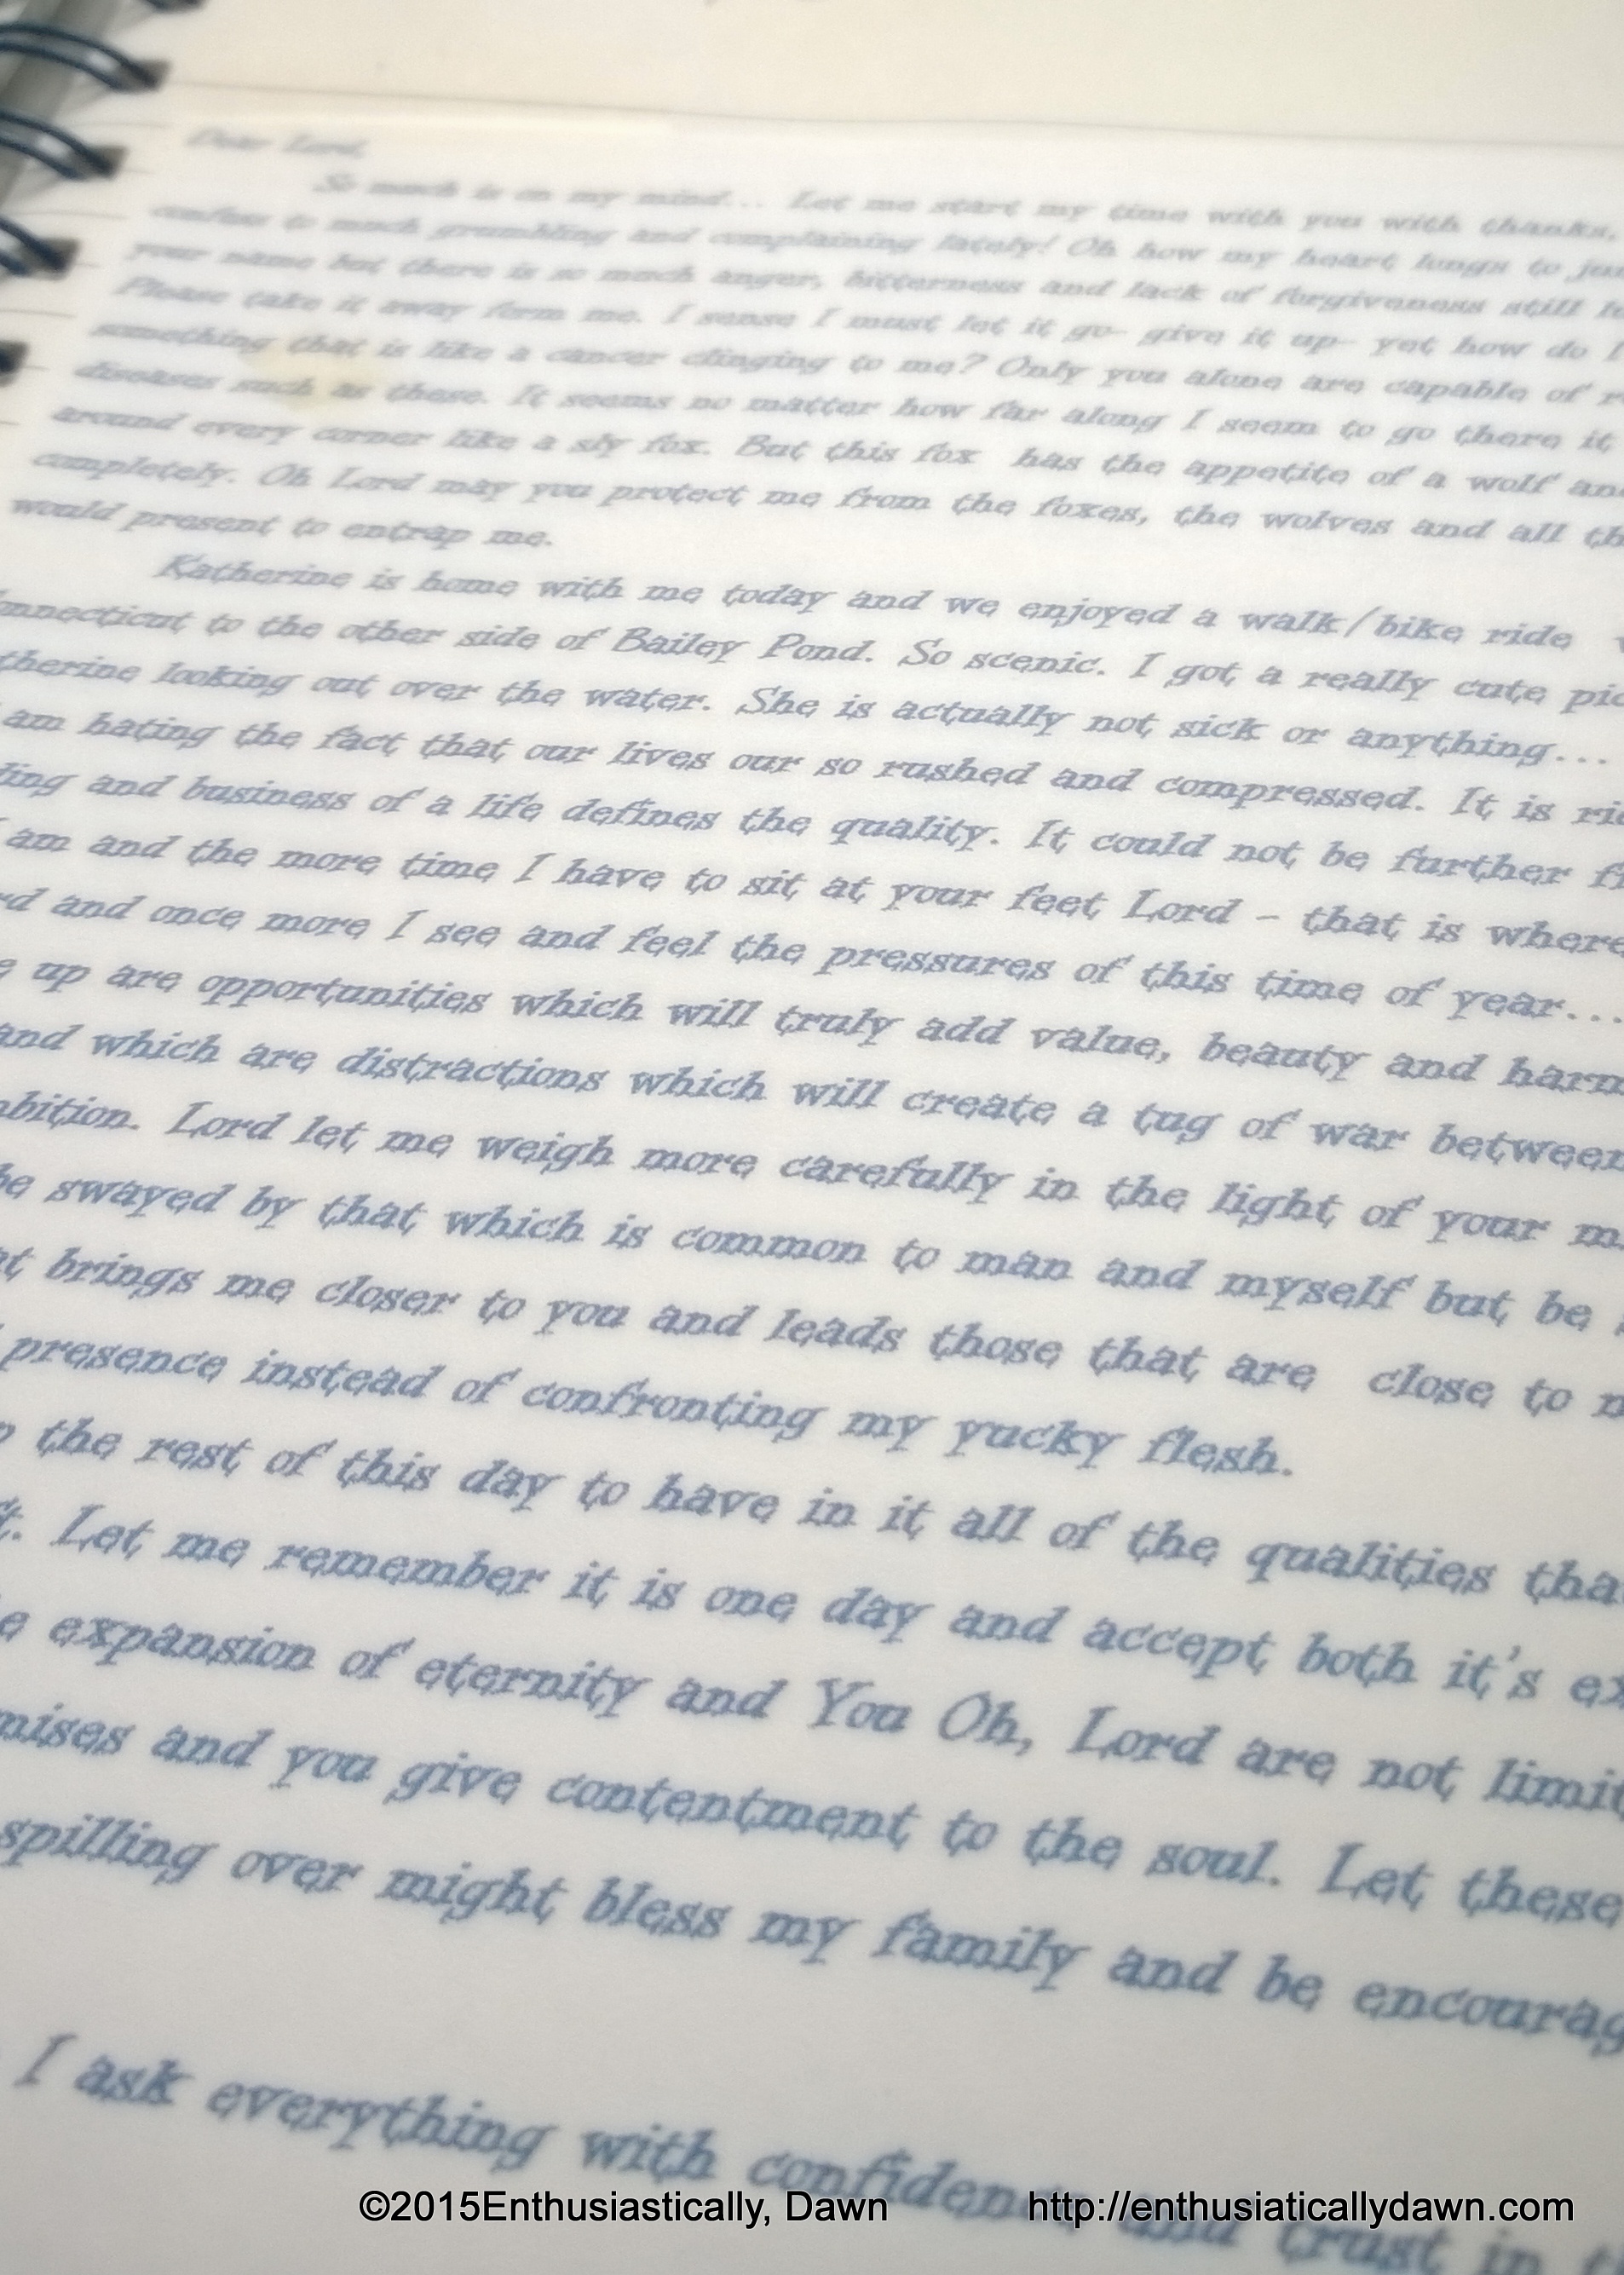 Dear Lord,
So much is on my mind... Let me start my time with you with thanks.
confess to much grumbling and complaining lately! Oh how my heart longs to
your name but there is so much anger, bitterness and lack of forgiveness still
Please take it away form me. I sense I must let it go- give it up- yet how do I
something that is like a cancer clinging to me? Only you alone are capable of
diseases such as these. It seems no matter how far along I seem to go there it
around every corner like a sly fox. But this fox has the appetite of a wolf
completely. Oh Lord may you protect me from the foxes, the wolves and all
would present to entrap me.
Katherine is home with me today and we enjoyed a walk/bike ride
onnecticut to the other side of Bailey Pond. So scenic. I got a really cute pic
therine looking out over the water. She is actually not sick or anything...
am hating the fact that our lives our so rushed and compressed. It is
ling and business of a life defines the quality. It could not be further
I am and the more time I have to sit at your feet Lord - that is where
rd and once more I see and feel the pressures of this time of year...
e up are opportunities which will truly add value, beauty and harm
and which are distractions which will create a tug of war between
bition. Lord let me weigh more carefully in the light of your
be swayed by that which is common to man and myself but be
at brings me closer to you and leads those that are close to
presence instead of confronting my yucky flesh.
the rest of this day to have in it all of the qualities
t. Let me remember it is one day and accept both it's ex
e expansion of eternity and You Oh, Lord are not limit
mises and you give contentment to the soul. Let these
spilling over might bless my family and be encourag
I ask everything with confidence and trust in
©2015Enthusiastically, Dawn http://enthusiaticallydawn.com